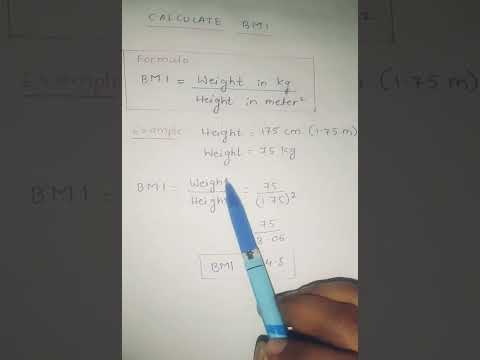 CALCULATE BMI
Formula
BMI = Weight in kg
Height in meter²
Example Height = 175 cm (1.75 m)
Weight = 75 kg
BMI = Weight = 75
Height (1.75)²
75
3.06
BMI 4.5